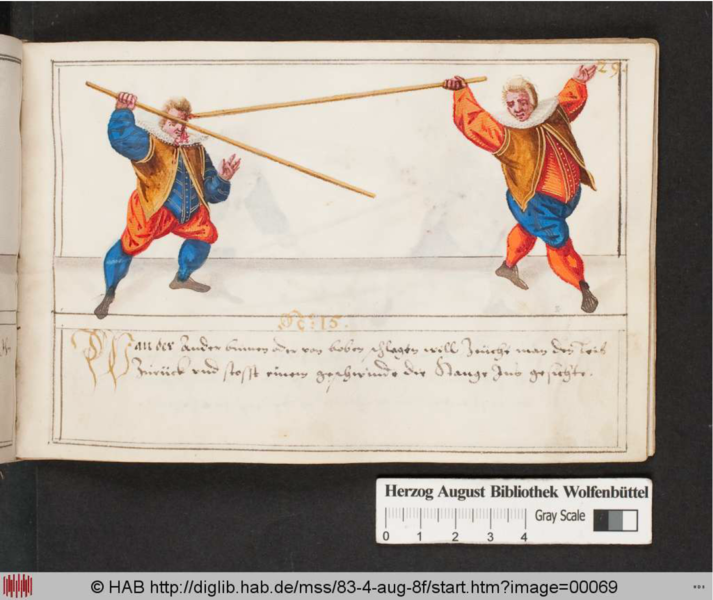 29.
St: 15.
Wan der Ander binnen oder von boben schlagen will Zeucht man das leib
Zurück vnd stosst einem geschwinde die Stange Ins gesichte.
Herzog August Bibliothek Wolfenbüttel
Gray Scale
0 1 2 3 4
© HAB http://diglib.hab.de/mss/83-4-aug-8f/start.htm?image=00069